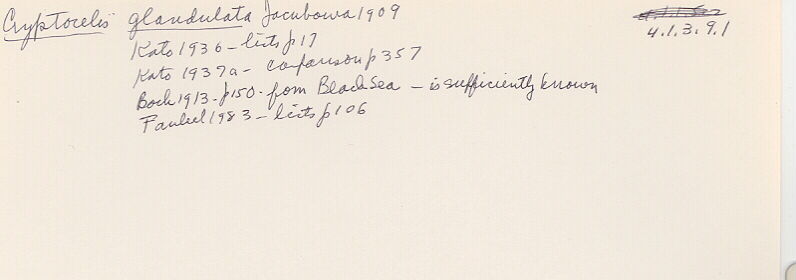 Cryptocelis glandulata Jacubowa 1909
4.1.3.9.1
Kato 1936 - lists p17
Kato 1937a - comparison p357
Bock 1913 - p150 - from Black Sea - is sufficiently known
Faubel 1983 - lists p106